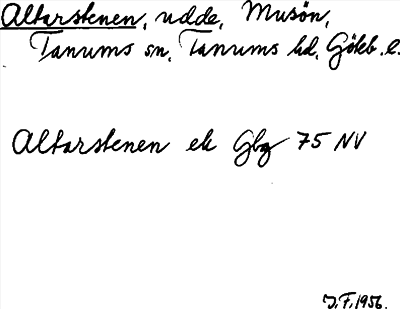 Altarstenen, udde, Musön,
Tanums sn, Tanums hd, Göteb. l.
Altarstenen ek Gbg 75 NV
J.F. 1956.